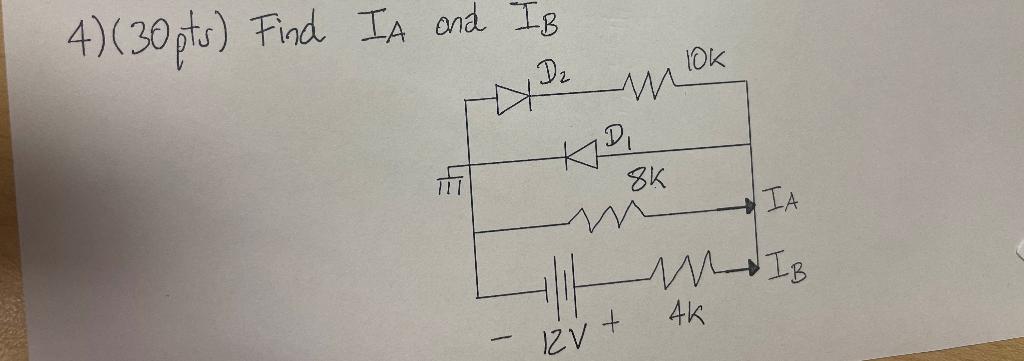 4)(30pts) Find IA and IB
D2
10K
D1
8K
IA
IB
4K
- 12V +